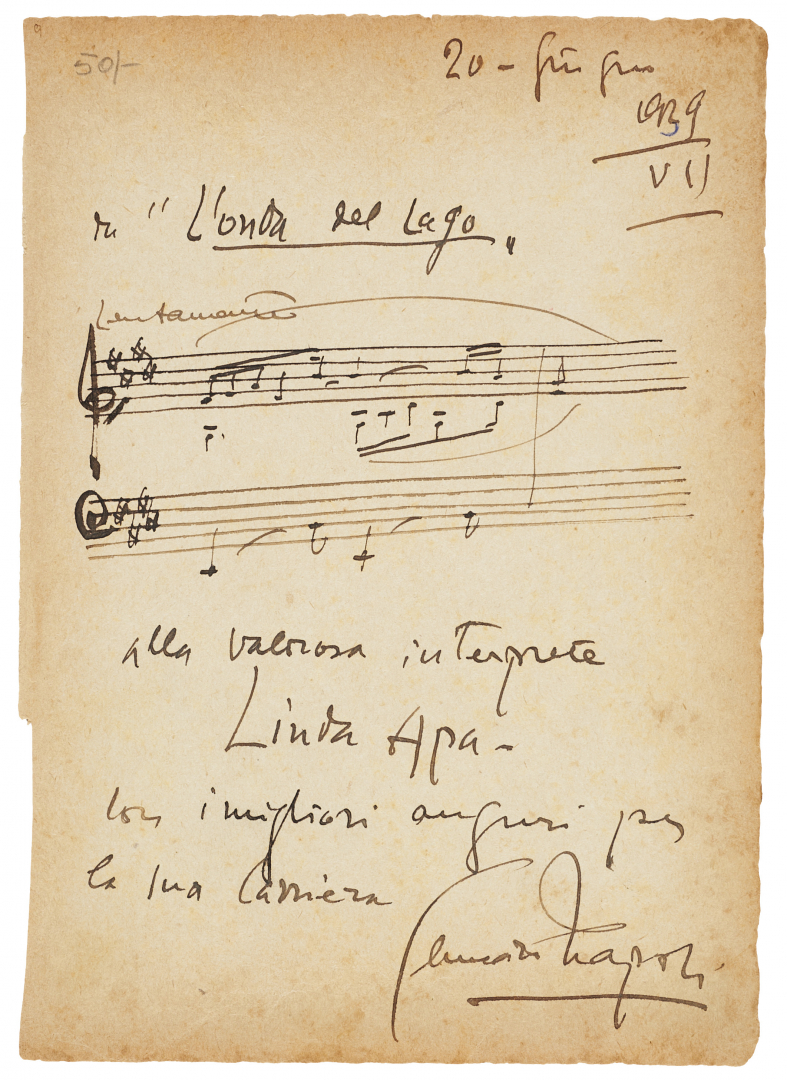 50/-
20 - Giugno
1939
VII
da "L'onda del Lago"
Lentamente
alla valorosa interprete
Linda Apa -
con i migliori auguri per
la sua carriera
Gennaro Napoli